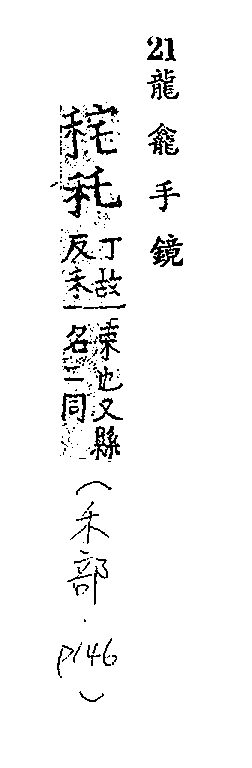 21龍龕手鏡
秺秅丁故反禾一束也又縣名二同(禾部.p146)